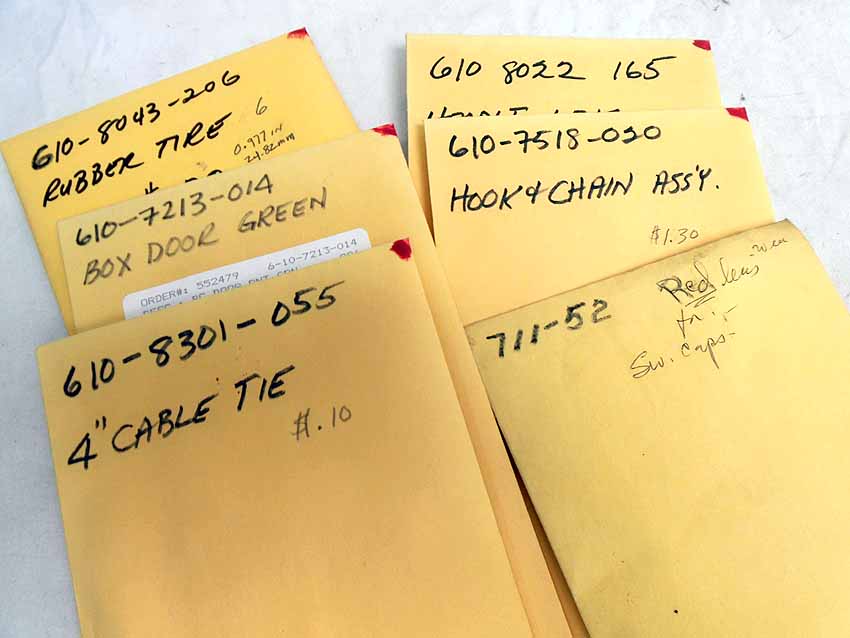 610-8043-206
RUBBER TIRE
6
0.977 IN
24.82mm
610-7213-014
BOX DOOR GREEN
ORDER#: 552479 6-10-7213-014
610-8301-055
4" CABLE TIE
$.10
610 8022 165
610-7518-020
HOOK & CHAIN ASS'Y.
$1.30
711-52
Red lens
for
Sw. Caps-